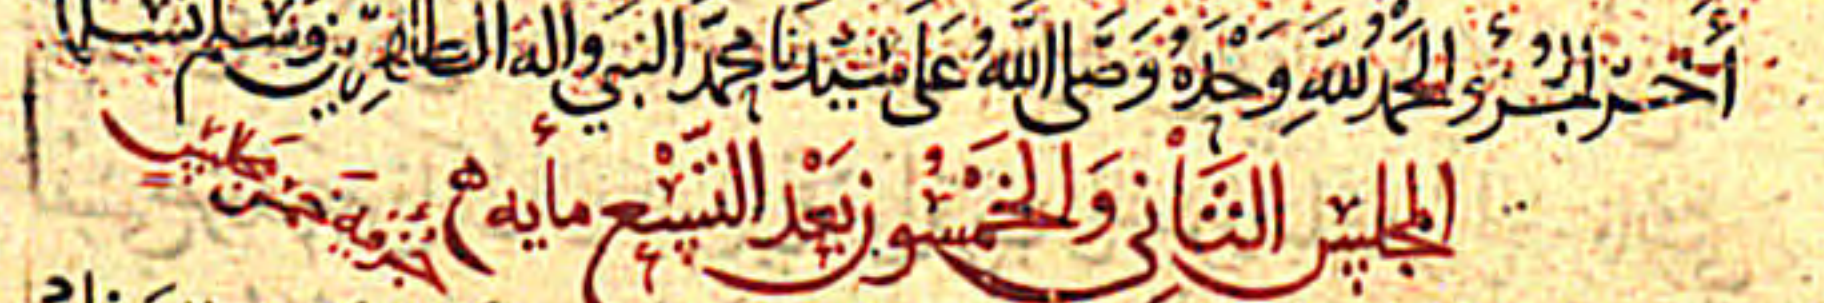 أخر الجزء الحمد لله وحده وصلى الله على سيدنا محمد النبي واله الطاهرين وسلم تسليما
المجلس الثاني والخمسون بعد التسع مأيه